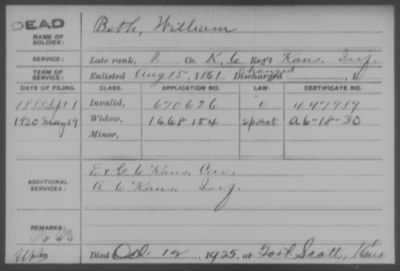 DEAD
NAME OF SOLDIER: Beth, William
SERVICE: Late rank, Co. K, 6 Reg't Kans. Inf.
TERM OF SERVICE: Enlisted Aug 15, 1861 Discharged
DATE OF FILING. CLASS. APPLICATION NO. LAW CERTIFICATE NO.
Sept 1 Invalid, 670626 447989
1930 May 19 Widow, 1668154 A6-18-30
Minor,
ADDITIONAL SERVICES: E & G 6 Kans. Cav.
A 6 Kans. Inf.
REMARKS:
Died Oct. 12, 1925, at Fort Scott, Kans